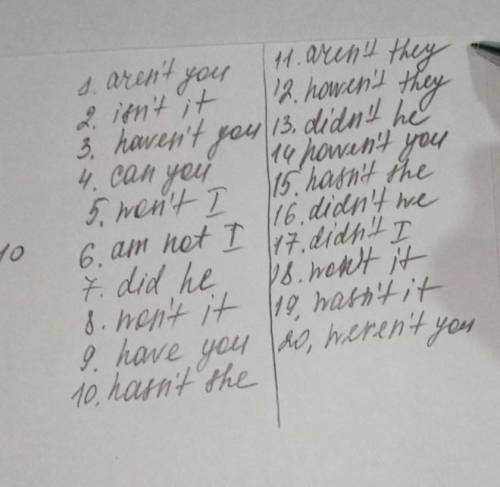 1. aren't you
2. isn't it
3. haven't you
4. can you
5. won't I
6. am not I
7. did he
8. won't it
9. have you
10. hasn't she
10
11. aren't they
12. haven't they
13. didn't he
14 haven't you
15. hasn't she
16. didn't we
17. didn't I
18. won't it
19, wasn't it
20, weren't you